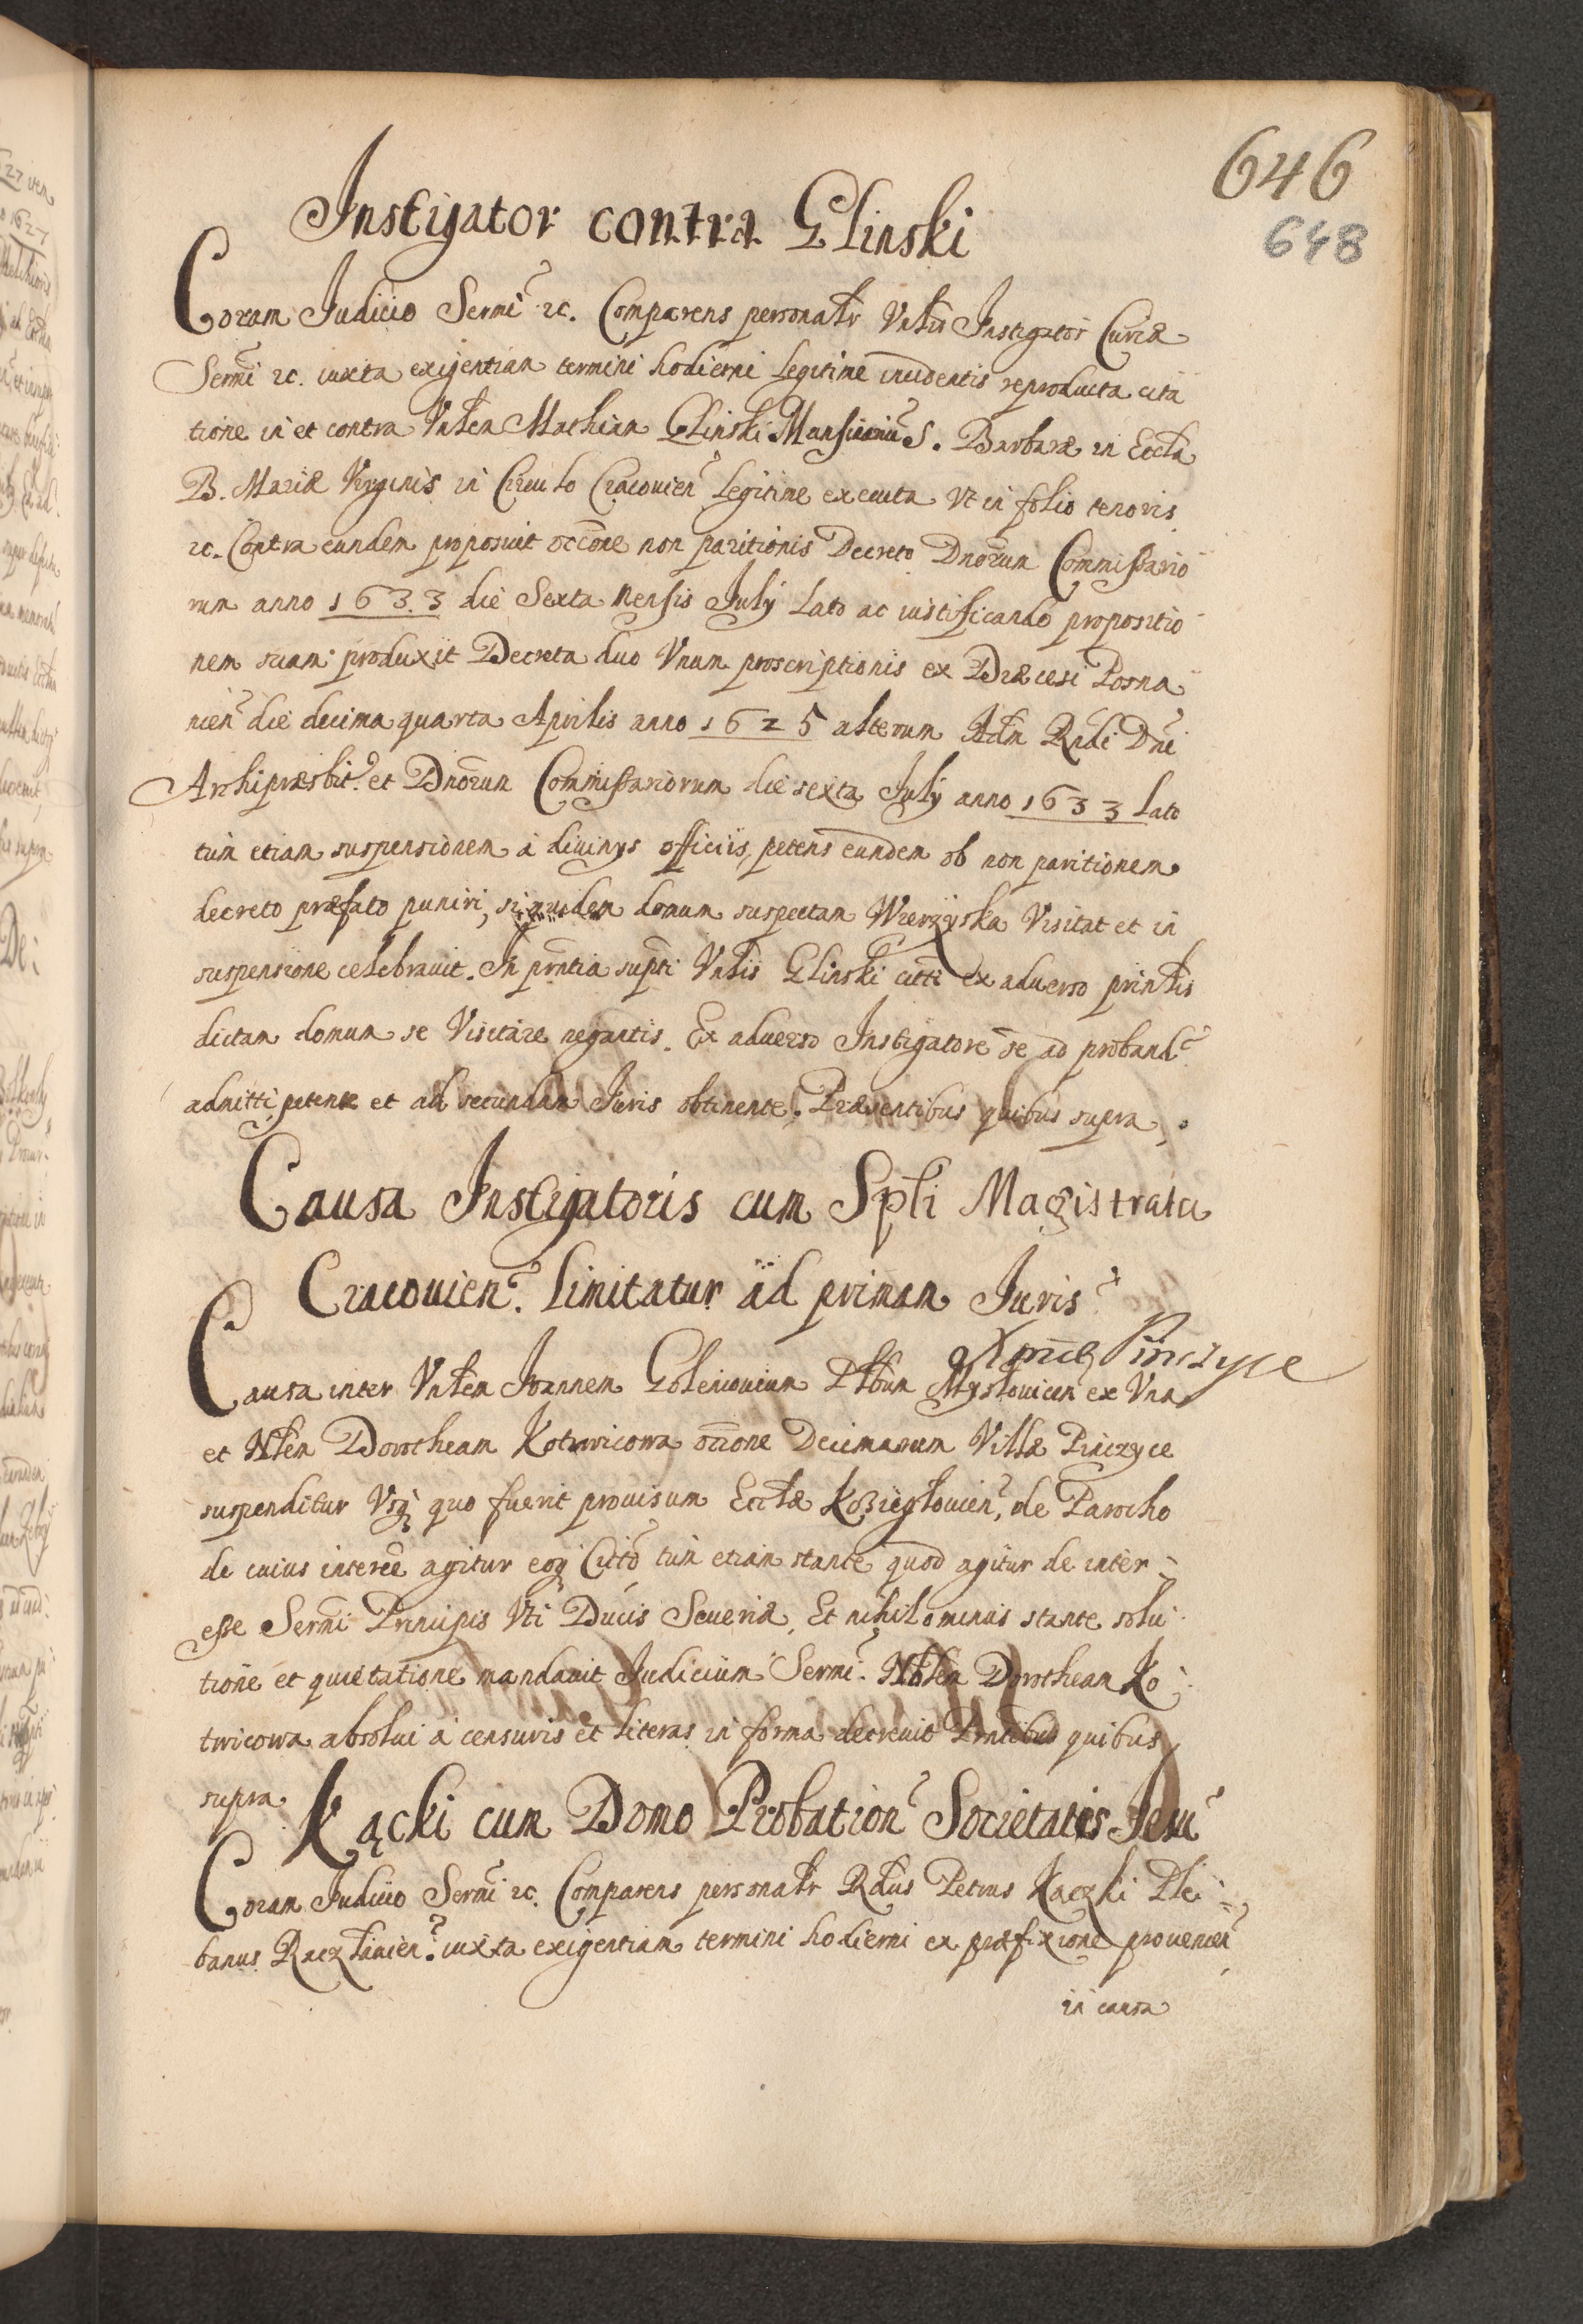 646
648
Instigator contra Glinski
Coram Judicio Sermi &c. Comparens personalr Vnlis Instigator Curiæ
Sermi &c. iuxta exigentiam termini hodierni legitime incidentis reproducta cita
tione in et contra Vnlem Mathiam Glinski Mansionariu S. Barbaræ in Eccla
B. Mariæ Virginis in Circulo Cracouien legitime executa Vt in folio tenoris
&c. Contra eundem proposuit occione non paritionis Decreto Dnorum Commissario
rum anno 1633 die Sexta mensis July lato ac iustificando propositio
nem suam produxit Decreta duo Vnum proscriptionis ex Diæcesi Posna
nien die decima quarta Aprilis anno 1625 alterum Adm Rndi Dni
Archipræsbit. et Dnorum Commissariorum die sexta July anno 1633 lato
tum etiam suspensionem a diuinys officiis, petens eundem ob non paritionem
decreto præfato puniri, siquidem domum suspectam Wierzyska Visitat et in
suspensione celebrauit. In pntia supti Vnlis Glinski citti ex aduerso prinlis
dictam domum se Visitare negantis. Ex aduerso Instigatore se ad proband
admitti petente et ad secundam Iuris obtinente. Præsentibus quibus supra.
Causa Instigatoris cum Spli Magistratu
Cracouien. limitatur ad primam Iuris
Xmæ Pinczyce
Causa inter Vnlem Joannem Goleniouium Plbum Myslouicen ex Vna
et Nlem Dorotheam Kotwicowa occione Decimarum Villæ Pinczyce
suspenditur Vsq quo fuerit prouisum Ecclæ Kozieglouien, de Parocho
de cuius interee agitur eoq Citto tum etiam stante quod agitur de inter-
esse Sermi Principis Vti Ducis Seueriæ, Et nihilominus stante solu
tione et quietatione mandauit Judicium Sermi. Nblem Dorotheam Ko
twicowa absolui a censuris et literas in forma decreuit Pntibus quibus
supra.
Kącki cum Domo Probation Societatis Jesu
Coram Judicio Sermi &c. Comparens personalr Rdus Petrus Kaczki Ple
banus Raczliuien. iuxta exigentiam termini hodierni ex præfixione prouenien
in causa